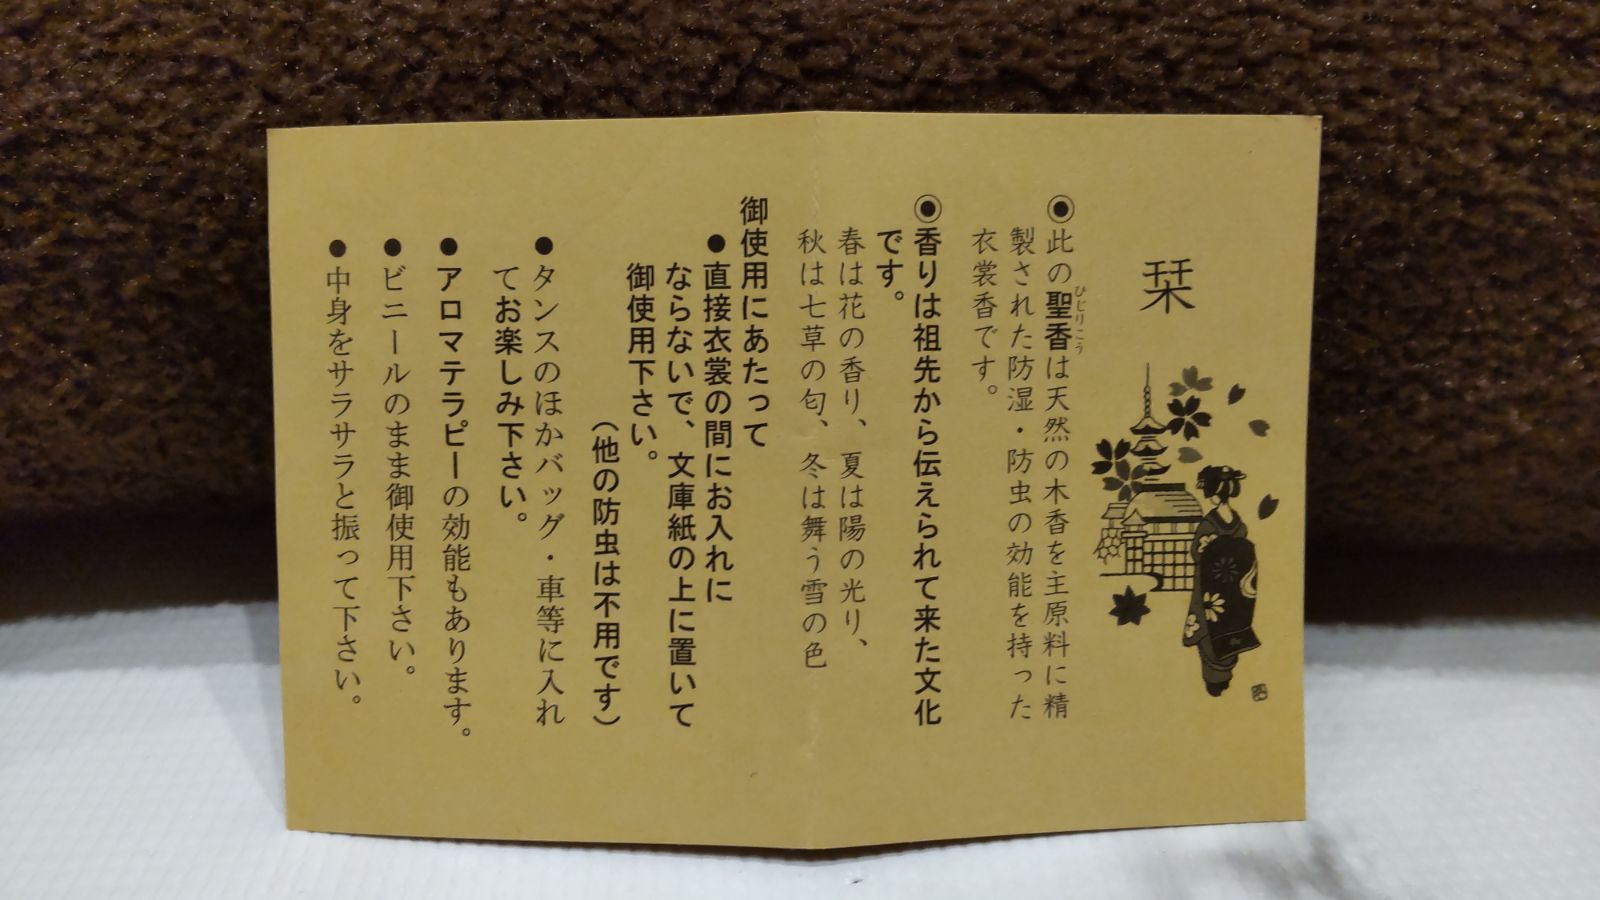 栞
◉此の聖香は天然の木香を主原料に精
ひじりこう
製された防湿・防虫の効能を持った
衣裳香です。
◉香りは祖先から伝えられて来た文化
です。
春は花の香り、夏は陽の光り、
秋は七草の匂、冬は舞う雪の色
御使用にあたって
●直接衣裳の間にお入れに
ならないで、文庫紙の上に置いて
御使用下さい。
(他の防虫は不用です)
●タンスのほかバッグ・車等に入れ
てお楽しみ下さい。
●アロマテラピーの効能もあります。
●ビニールのまま御使用下さい。
●中身をサラサラと振って下さい。